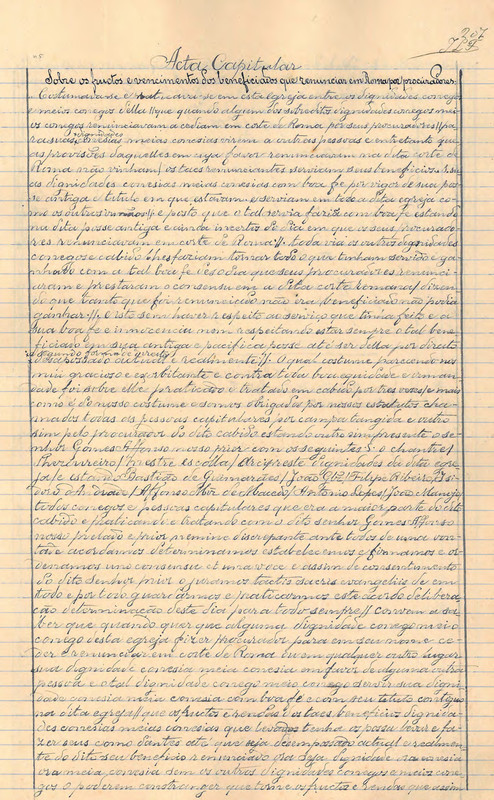 257
Acta Capitular
Sobre os fructos e vencimentos dos beneficiados que renunciar em Roma por procuradores.
Costumavase e praticavase em esta egreja entre os dignidades conegos
e meios conegos della / que quando algem dos sobredtos dignidades conegos mei-
os conegos renunciavam a cediam em corte de Roma por seus procuradores / pa-
dignidades
ra suas conesias meias conesias virem a outras pessoas e entretanto que
as provisões daquelles em cuja favor renunciavam na dita corte de
Roma não vinham / os taes renunciantes serviam seus beneficios e su-
as dignidades conesias meias conesias com boa fe por vigor de sua pos-
se antiga e titulo em que estavam e serviam em todo a dita egreja co-
mo os outros e posto que o tal servia fazia com boa fe estando
na dita posse antiga e ainda incerto do dia em que os seus procurado-
res renunciavam em corte de Roma / todavia os outros dignidades
conegos e cabido lhes faziam tornar todo o que tinham servido e ga-
nhado com a tal boa fe des o dia que seus procuradores renunci-
aram e prestaram o consensu em a dita corte romana / dizen-
do que tanto que foi renunciação não era beneficiado não podia
ganhar / O isto sem haver respeito ao serviço que tinha feito e a
sua boa fe e innocencia nem respeitando estar sempre o tal bene-
ficiado em sua antiga e pacifica posse até ser della por direito
e segundo forma de direito
desapossado actual e realmente / O qual costume parecendo nos
mui gracioso e exorbitante e contra toda boa equidade e irman-
dade foi sobre elle praticado e tratado em cabido por tres vezes e mais
como é de nosso costume e somos obrigados por nossos estatutos cha-
madas todas as pessoas capitulares por campa tangida e outro
sim pelo procurador do dito cabido estando outro sim presente o se-
nhor Gomes Affonso nosso prior com os seguintes o chantre /
Thezoureiro / mestre escolla / Arcipreste dignidades da dita egre-
ja / e estando Bastião de Guimarães / João Glz / Filipe Ribeiro / Isi-
doro d'Andrade / Affonso Mor de Macedo / Antonio Lopes / João
todos conegos e pessoas capitulares que era a maior parte do dito
cabido e praticando e tratando como dito senhor Gomes Affonso
nosso prelado e prior nemine discrepante ante todos de uma von-
tade acordamos determinamos estabelecemos e firmamos e or-
denamos uno consensu et una voce e assim de consentimento
do dito Senhor prior e juramos tactis sacris evangeliis de em
todo e por todo guardarmos e praticarmos este acordo delibera-
ção determinação deste dia para todo sempre / convem a sa-
ber que quando quer que alguma dignidade conego meio
conego desta egreja fizer procurador para em seu nome ce-
der e renunciar em corte de Roma ou em qualquer outro lugar
sua dignidade conesia meia conesia em favor de alguma outra
pessoa e a tal dignidade conego meio conego servir sua digni-
dade conesia meia conesia com boa fe e com seu titulo contiguo
na dita egreja / que os fructos e rendas dos taes beneficios dignida-
des conesias meias conesias que tenha os possa haver e fa-
zer seus como dantes até que seja desempossado actual e realmen-
te do dito seu beneficio renunciado ora seja dignidade ora conesia
ora meia conesia sem os outros dignidades conegos e meios cone-
gos o poderem constranger que torne os fructos e rendas que assim